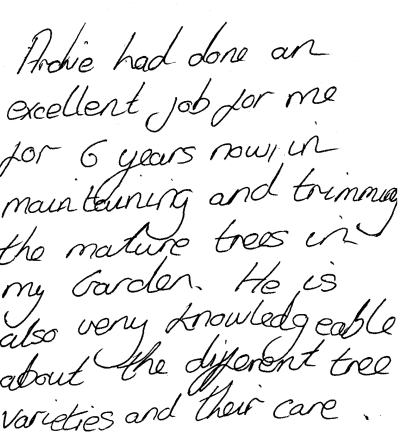 Archie had done an
excellent job for me
for 6 years now, in
maintaining and trimming
the mature trees in
my Garden. He is
also very knowledgeable
about the different tree
varieties and their care .